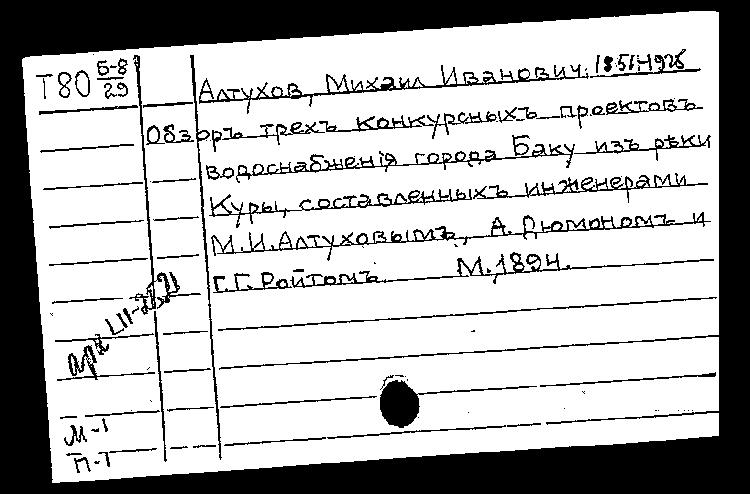 Т80 Б-8/29
Алтухов, Михаил Иванович. 1851-1925
Обзоръ трехъ конкурсныхъ проектовъ
водоснабженія города Баку изъ рѣки
Куры, составленныхъ инженерами
М.И.Алтуховымъ, А. Дюмономъ и
Г.Г.Ройтомъ. М.,1894.
арх LII-
М-1
П-1